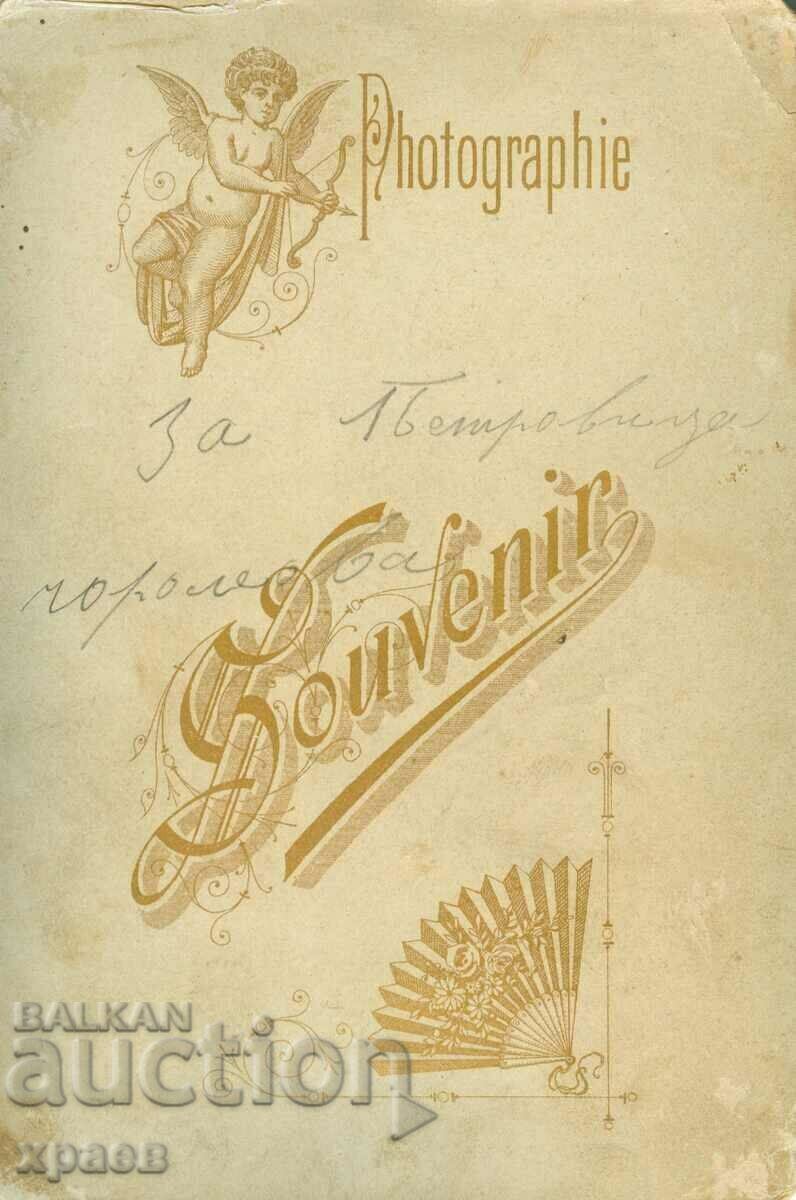 Photographie
За Петровица
чоролеева
Souvenir
BALKAN
auction
храев